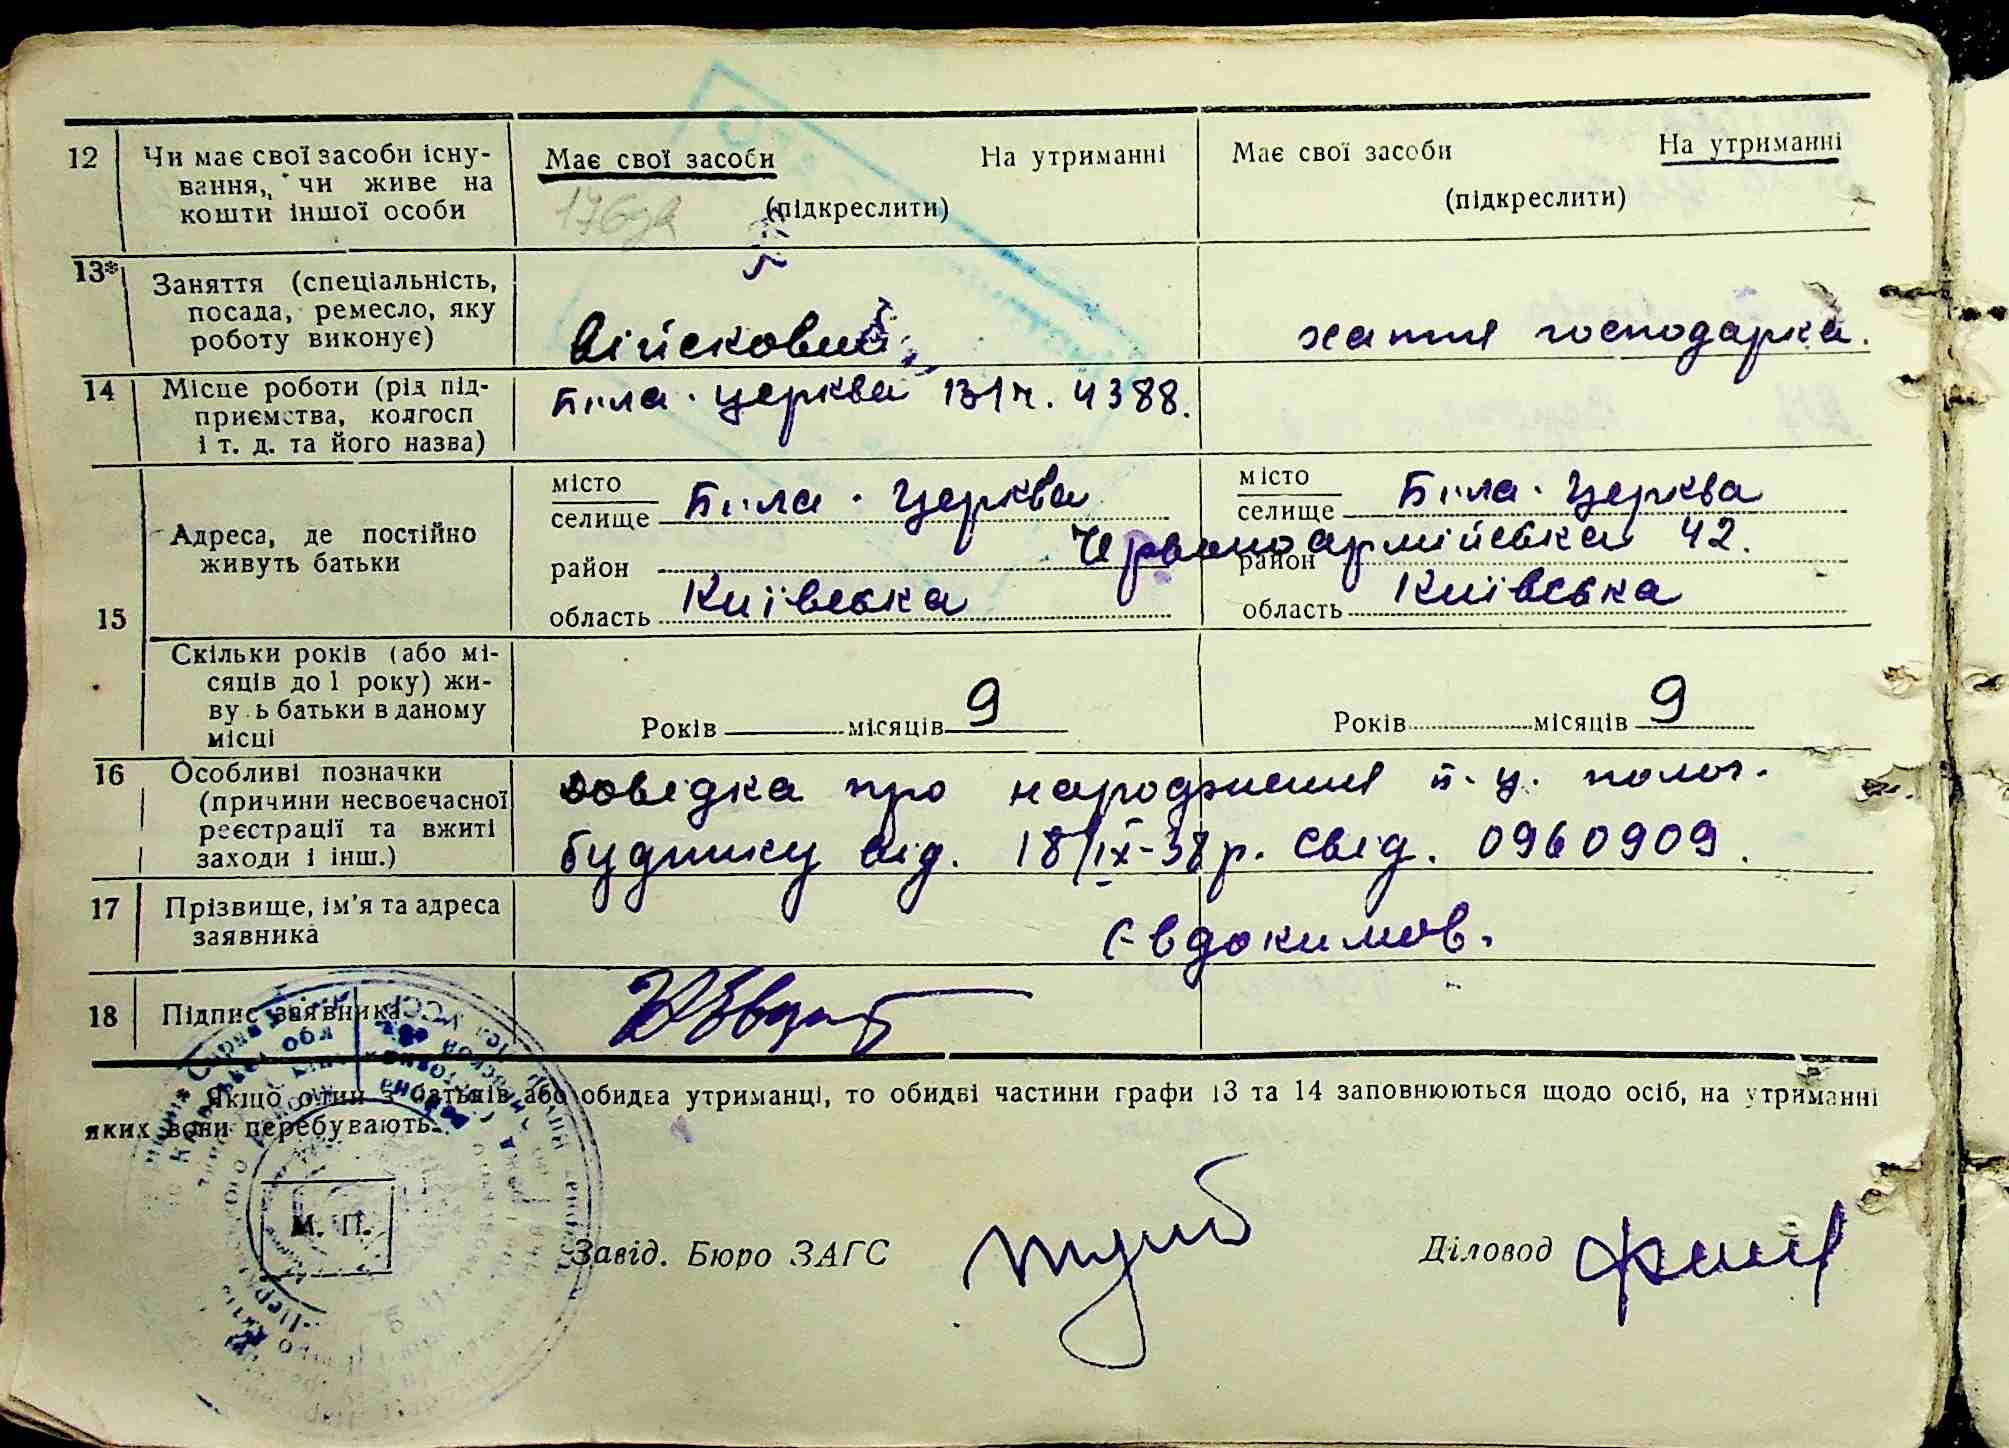 12 Чи має свої засоби існу- Має свої засоби На утриманні Має свої засоби На утриманні
вання, чи живе на
кошти іншої особи (підкреслити) (підкреслити)
13* Заняття (спеціальність,
посада, ремесло, яку
роботу виконує) Війсковий хатня господарка.
14 Місце роботи (рід під-
приємства, колгосп Біла-церква в/ч. 4388.
і т. д. та його назва)
15 Адреса, де постійно
живуть батьки
місто
селище Біла-Церква
район
область Київська
місто
селище Біла-Церква
Червоноармійська 42.
район
область Київська
Скільки років (або мі-
сяців до 1 року) жи-
ву ь батьки в даному
місці
Років місяців 9 Років місяців 9
16 Особливі позначки
(причини несвоєчасної
реєстрації та вжиті
заходи і інш.)
довідка про народження б.ц. полог.
будинку від. 18/IX-38р. Свід. 0960909.
17 Прізвище, ім'я та адреса
заявника Євдокимов.
18 Підпис заявника
Якщо один з батьків або обидва утриманці, то обидві частини графи 13 та 14 заповнюються щодо осіб, на утриманні
яких вони перебувають.
М. П.
Завід. Бюро ЗАГС Діловод